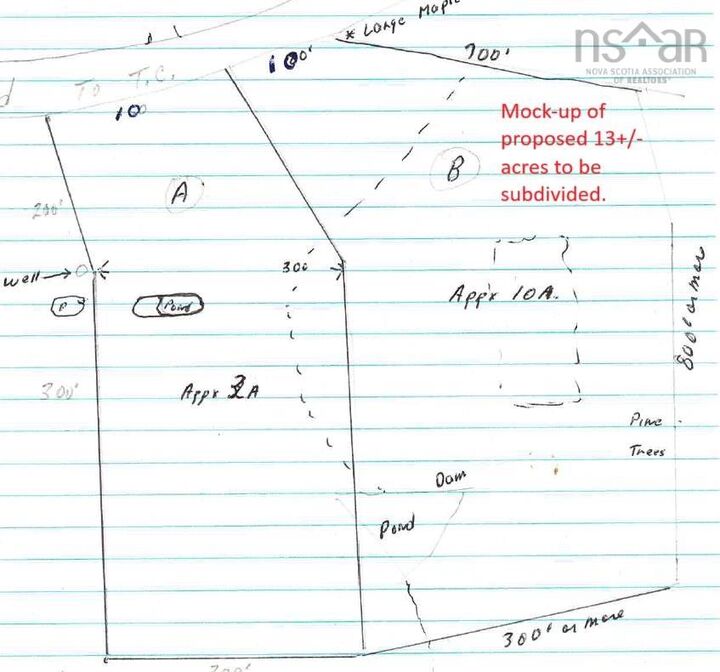 * Large Maple
nsar
NOVA SCOTIA ASSOCIATION
OF REALTORS®
To T.C.
100'
700'
100
Mock-up of
proposed 13+/-
acres to be
subdivided.
A
B
200'
well
300'
P
Pond
Appx 10A.
800' or more
300'
Appx 3A
Pine
Trees
Dam
Pond
300' or more